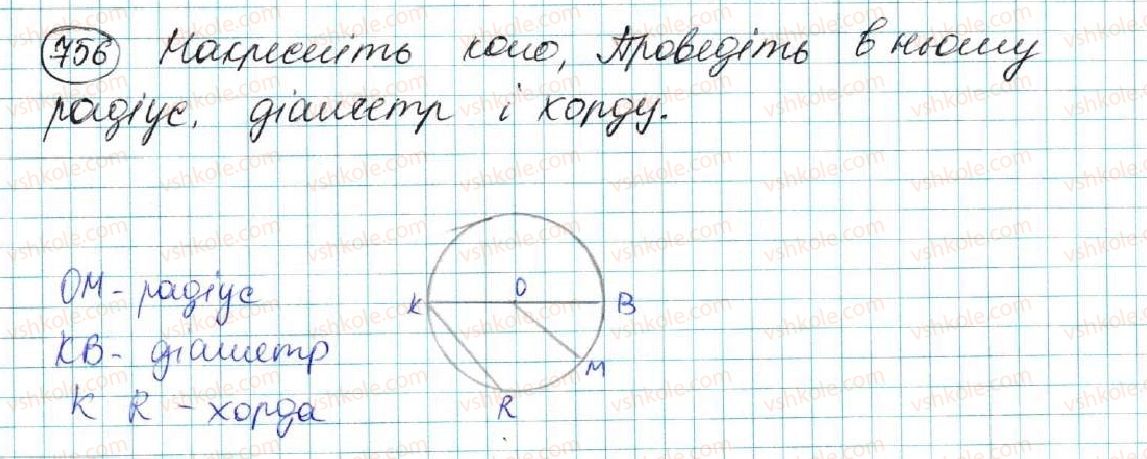 756 Накресліть коло, Проведіть в ньому
радіус, діаметр і хорду.
OM - радіус
KB - діаметр
K R - хорда
K
O
B
M
R
vshkole.com